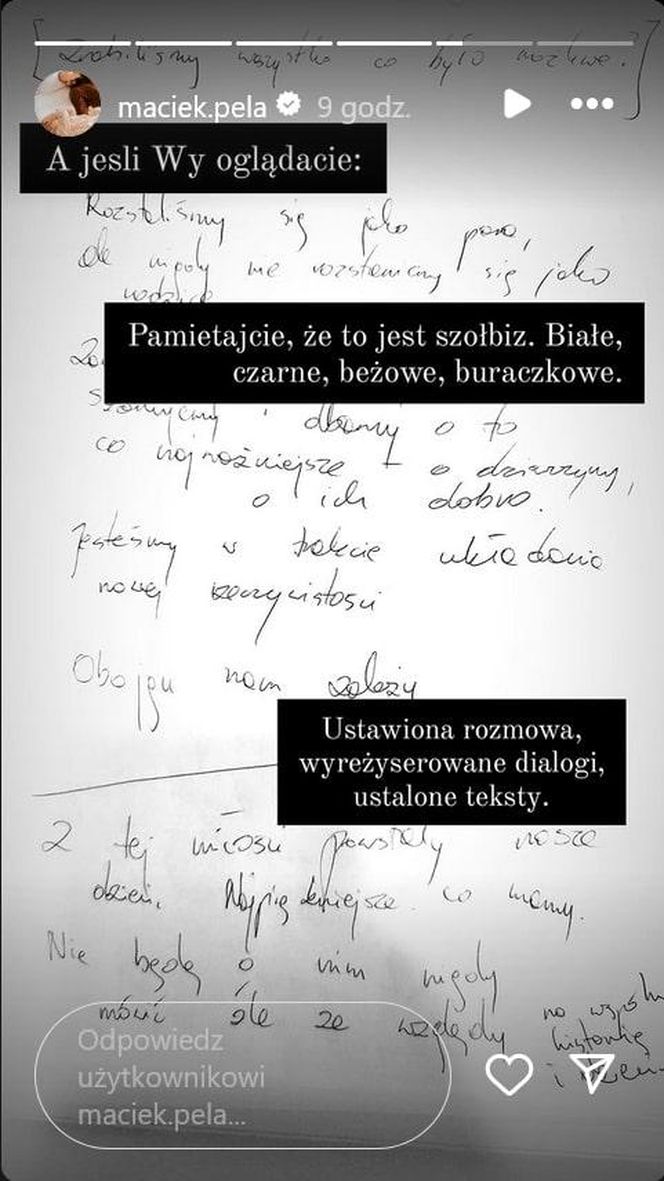 [Zrobiliśmy wszystko co było możliwe?]
maciek.pela 9 godz.
A jesli Wy oglądacie:
Rozstaliśmy się jako para,
ale nigdy nie rozstaniemy się jako
rodzice
Pamietajcie, że to jest szołbiz. Białe,
czarne, beżowe, buraczkowe.
i dbamy o to
co najważniejsze - o dziewczyny,
o ich dobro.
Jesteśmy w trakcie układania
nowej rzeczywistości
Obojgu nam zależy
Ustawiona rozmowa,
wyreżyserowane dialogi,
ustalone teksty.
Z tej miłości powstały nasze
dzieci. Najpiękniejsze co mamy.
Nie będę o nim nigdy
mówić źle ze względu na
historię
i
Odpowiedz
użytkownikowi
maciek.pela...